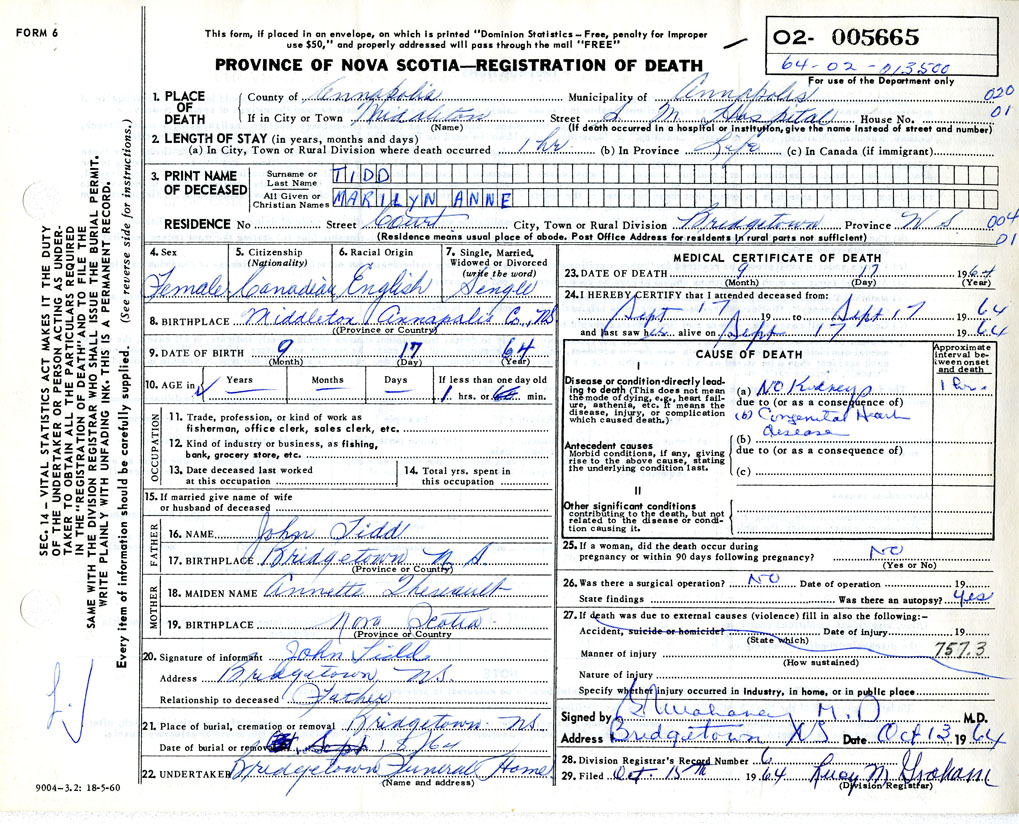 FORM 6
This form, if placed in an envelope, on which is printed "Dominion Statistics – Free, penalty for improper
use $50," and properly addressed will pass through the mail "FREE"
PROVINCE OF NOVA SCOTIA—REGISTRATION OF DEATH
02- 005665
64-02-013500
For use of the Department only
1. PLACE OF DEATH
County of Annapolis Municipality of Annapolis 020
If in City or Town Middleton Street S M Hospital House No. 01
(Name) (If death occurred in a hospital or institution, give the name instead of street and number)
2. LENGTH OF STAY (in years, months and days)
(a) In City, Town or Rural Division where death occurred 1 hr (b) In Province Life (c) In Canada (if immigrant)
3. PRINT NAME OF DECEASED
Surname or Last Name TIDD
All Given or Christian Names MARILYN ANNE
RESIDENCE No Street Court City, Town or Rural Division Bridgetown Province N S 004
(Residence means usual place of abode. Post Office Address for residents in rural parts not sufficient) 01
4. Sex
Female
5. Citizenship
(Nationality)
Canadian
6. Racial Origin
English
7. Single, Married,
Widowed or Divorced
(write the word)
Single
8. BIRTHPLACE Middleton Annapolis Co., NS
(Province or Country)
9. DATE OF BIRTH 9 17 64
(Month) (Day) (Year)
10. AGE in Years Months Days If less than one day old
1 hrs. or min.
OCCUPATION
11. Trade, profession, or kind of work as
fisherman, office clerk, sales clerk, etc.
12. Kind of industry or business, as fishing,
bank, grocery store, etc.
13. Date deceased last worked
at this occupation
14. Total yrs. spent in
this occupation
15. If married give name of wife
or husband of deceased
FATHER
16. NAME John Tidd
17. BIRTHPLACE Bridgetown N S
(Province or Country)
MOTHER
18. MAIDEN NAME Annette Theriault
19. BIRTHPLACE Nova Scotia
(Province or Country
20. Signature of informant John Tidd
Address Bridgetown NS.
Relationship to deceased Father
21. Place of burial, cremation or removal Bridgetown NS.
Date of burial or removal Sept 18/64
22. UNDERTAKER Bridgetown Funeral Home
(Name and address)
MEDICAL CERTIFICATE OF DEATH
23. DATE OF DEATH 9 17 1964
(Month) (Day) (Year)
24. I HEREBY CERTIFY that I attended deceased from:
Sept 17 19 to Sept 17 64
and last saw her alive on Sept 17 1964
CAUSE OF DEATH
Approximate
interval be-
tween onset
and death
I
Disease or condition directly lead-
ing to death (This does not mean
the mode of dying, e.g., heart fail-
ure, asthenia, etc. It means the
disease, injury, or complication
which caused death.)
(a) No Kidneys 1 hr.
due to (or as a consequence of)
(b) Congenital Heart
disease
Antecedent causes
Morbid conditions, if any, giving
rise to the above cause, stating
the underlying condition last.
(b)
due to (or as a consequence of)
(c)
II
Other significant conditions
contributing to the death, but not
related to the disease or condi-
tion causing it.
25. If a woman, did the death occur during
pregnancy or within 90 days following pregnancy? NO
(Yes or No)
26. Was there a surgical operation? NO Date of operation 19
State findings Was there an autopsy? Yes
27. If death was due to external causes (violence) fill in also the following:–
Accident, suicide or homicide? Date of injury 19
(State which)
Manner of injury 757.3
(How sustained)
Nature of injury
Specify whether injury occurred in Industry, in home, or in public place
Signed by M.D M.D.
Address Bridgetown NS Date Oct 13 1964
28. Division Registrar's Record Number 6
29. Filed Oct. 15th 1964 Lucy M. Graham
(Division Registrar)
SEC. 14 – VITAL STATISTICS ACT MAKES IT THE DUTY
OF THE UNDERTAKER OR PERSON ACTING AS UNDER-
TAKER TO OBTAIN ALL THE PARTICULARS REQUIRED
IN THE "REGISTRATION OF DEATH" AND TO FILE THE
SAME WITH THE DIVISION REGISTRAR WHO SHALL ISSUE THE BURIAL PERMIT.
WRITE PLAINLY WITH UNFADING INK. THIS IS A PERMANENT RECORD.
Every item of information should be carefully supplied. (See reverse side for instructions.)
9004-3.2: 18-5-60